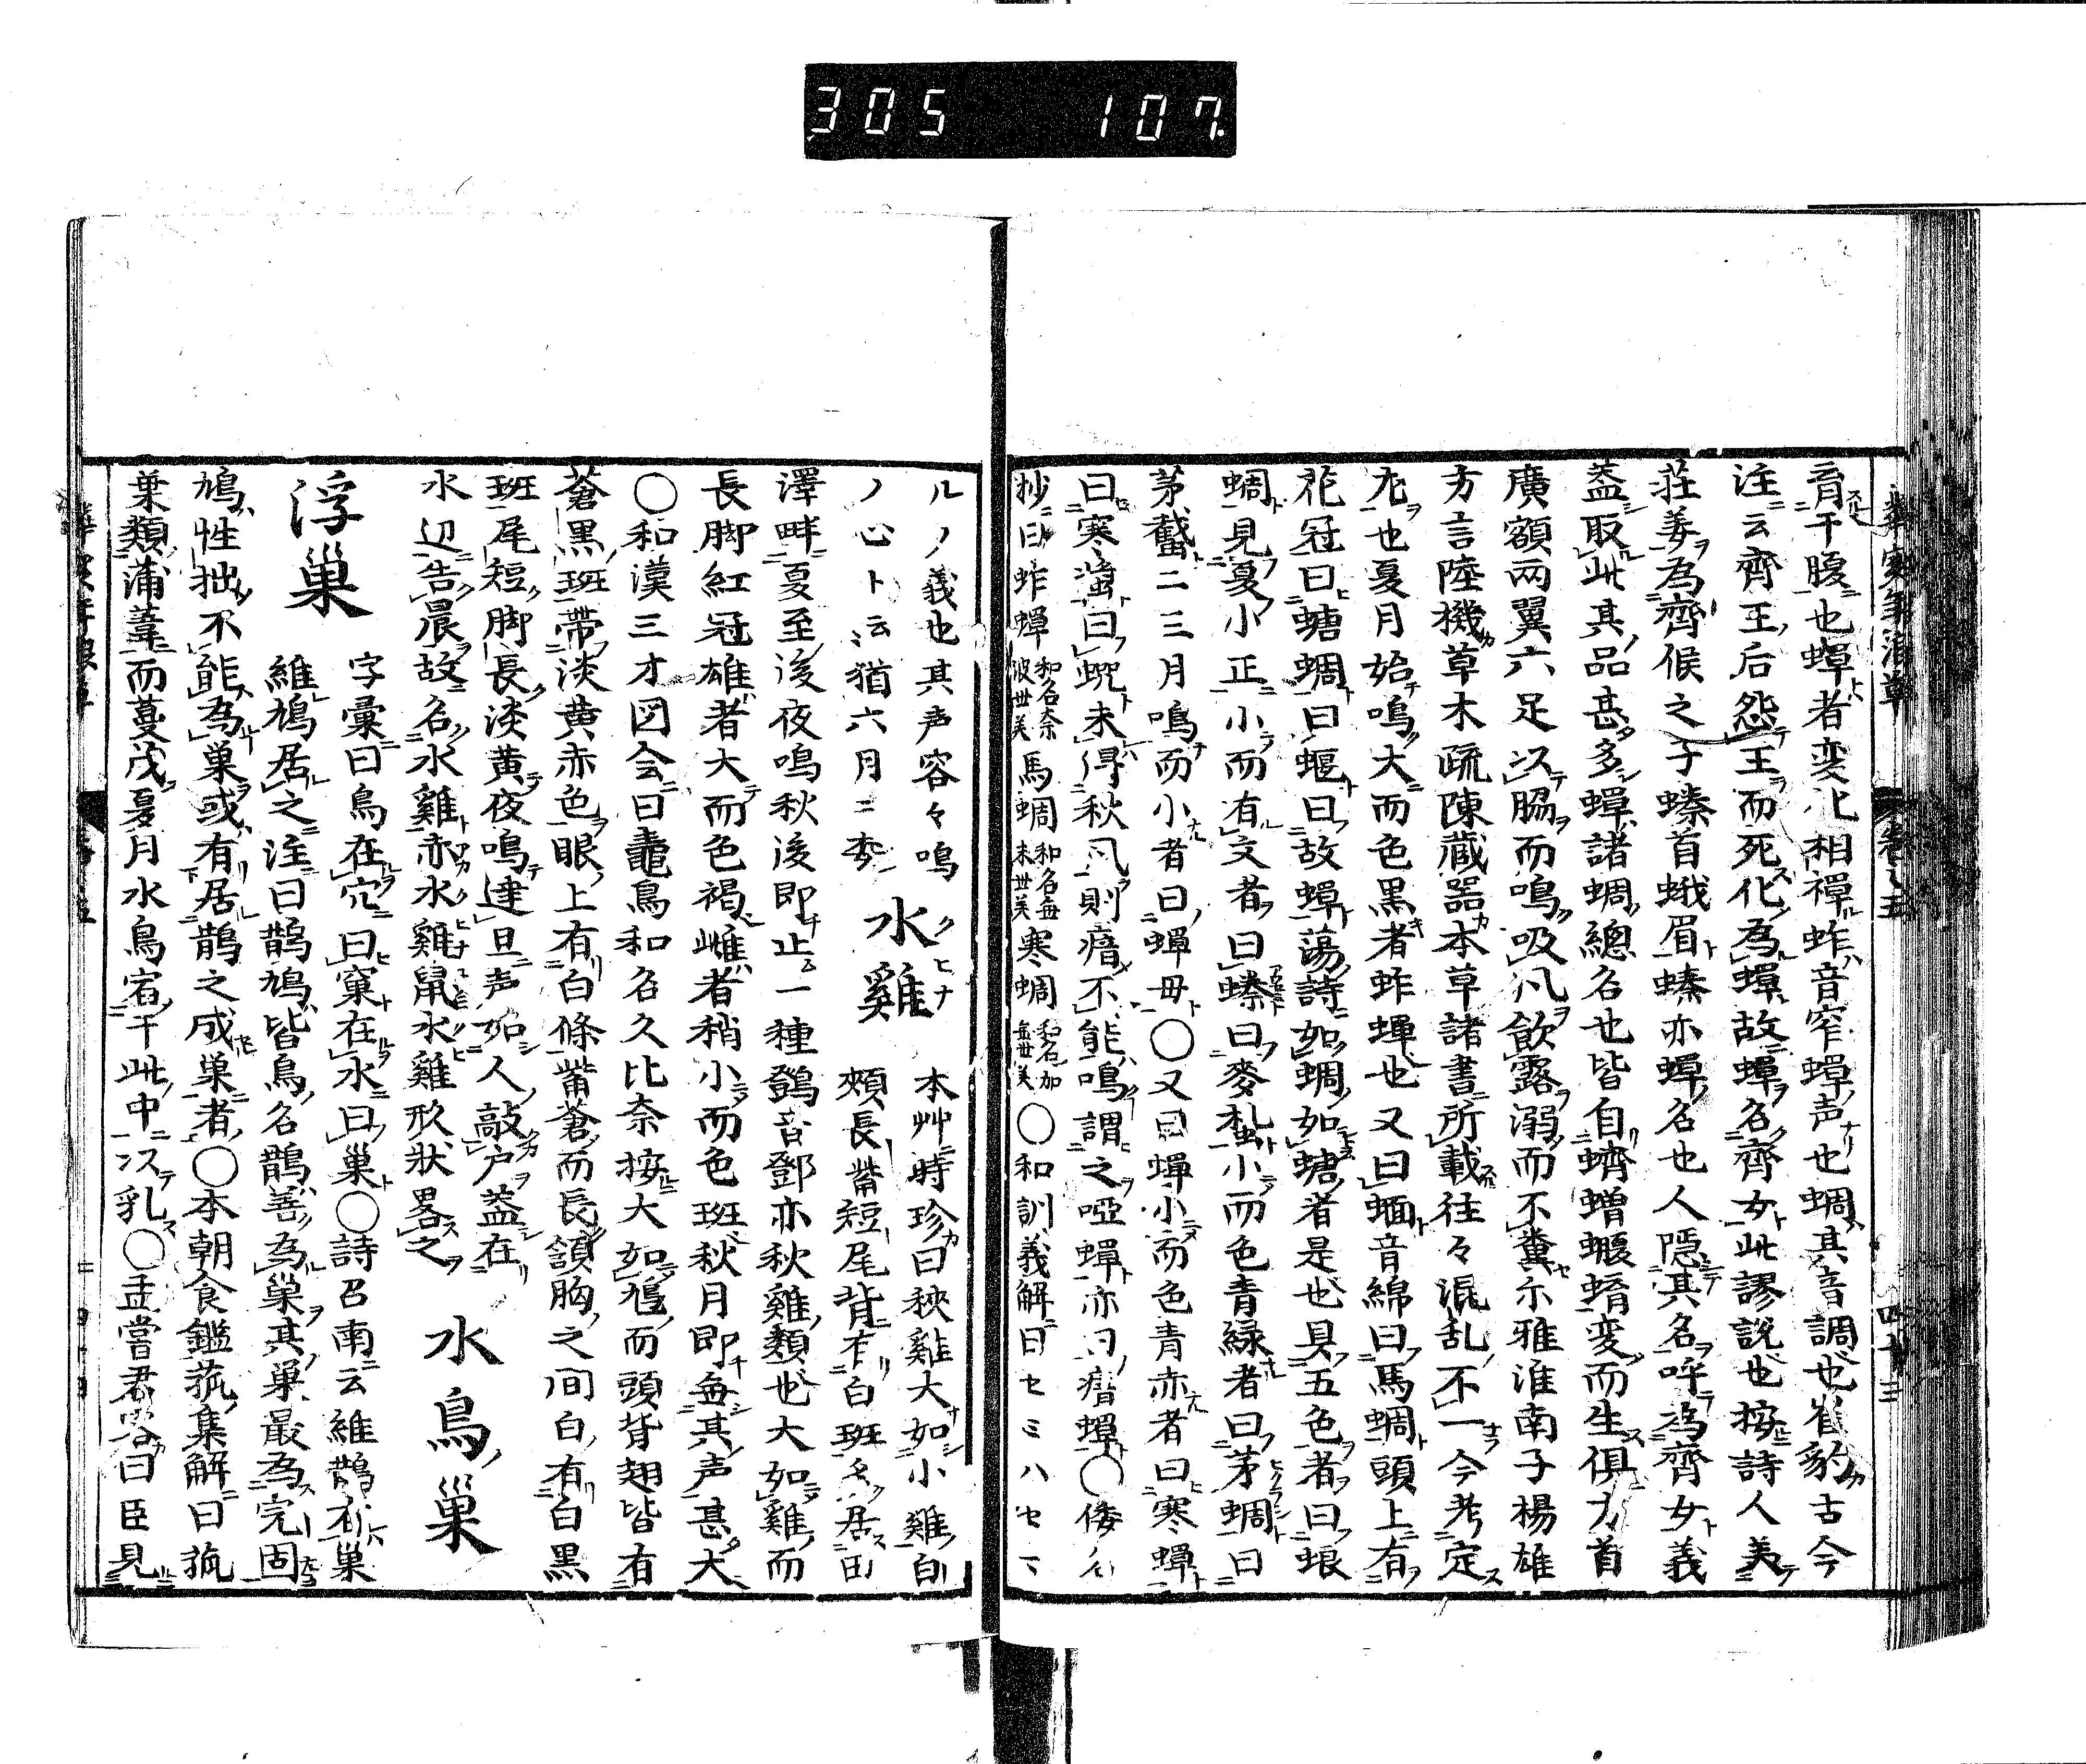 305 107
育于腹也蟬者変化相禪蚱音窄蟬声也蜩其音調也崔豹古今
注云齊王后怨王而死化為蟬故蟬名齊女此謬説也按詩人美
荘姜為齊候之子螓首蛾眉螓亦蟬名也人隠其名呼為齊女義
盖取此其品甚多蟬諸蜩總名也皆自蠐螬蝮蜟変而生俱方首
廣額両翼六足以脇而鳴吸凡飲露溺而不糞尓雅淮南子楊雄
方言陸機草木疏陳蔵噐本草諸書所載往々混乱不一今考定
尤也夏月始鳴大而色黒者蚱蟬也又曰蝒音綿曰馬蜩頭上有
花冠曰螗蜩曰蝘曰故蟬蕩詩如蜩如螗者是也具五色者曰蜋
蜩見夏小正小而有文者曰螓曰麥蚻小而色青緑者曰茅蜩曰
茅蠽二三月鳴而小者曰蟬母〇又曰蟬小而色青赤者曰寒蟬
曰寒螿曰蜺未得秋凡則瘖不能鳴謂之啞蟬亦曰瘖蟬〇倭名
抄曰蚱蟬和名奈波世美馬蜩和名無末世美寒蜩和名加無世美〇和訓義解曰セミハセマ
ルノ義也其声容々鳴
ノ心ト云猶六月ニ委
水雞 クヒナ
本艸時珍曰秧雞大如小雞白
頰長觜短尾背有白斑多居田
澤畔夏至後夜鳴秋後即止一種鵽音鄧亦秧雞類也大如雞而
長脚紅冠雄者大而色褐雌者稍小而色斑秋月即無其声甚大
〇和漢三才図会曰鼃鳥和名久比奈按大如鳩而頭背翅皆有
蒼黒斑帯淡黄赤色眼上有白條觜蒼而長頷胸之间白有白黒
斑尾短脚長淡黄夜鳴達旦声如人敲户盖在
水辺告晨故名水雞赤水雞鼠水雞形状畧之
水鳥巣
浮巣
字彙曰鳥在穴曰窠在木曰巣〇詩召南云維鵲有巣
維鳩居之注曰鵲鳩皆鳥名鵲善為巣其巣最為完固
鳩性拙不能為巣或有居鵲之成巣者〇本朝食鑑菰集解曰菰
葉類蒲葦而蔓茂夏月水鳥宿于此中以乳〇孟嘗君客曰臣見